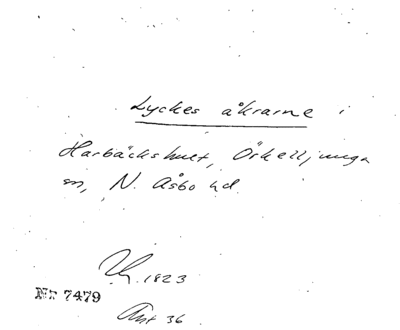 Lyckes åkrarne i
Harbäckshult, Örkelljunga
sn, N. Åsbo hd
1823
Nr 7479
Ant 36